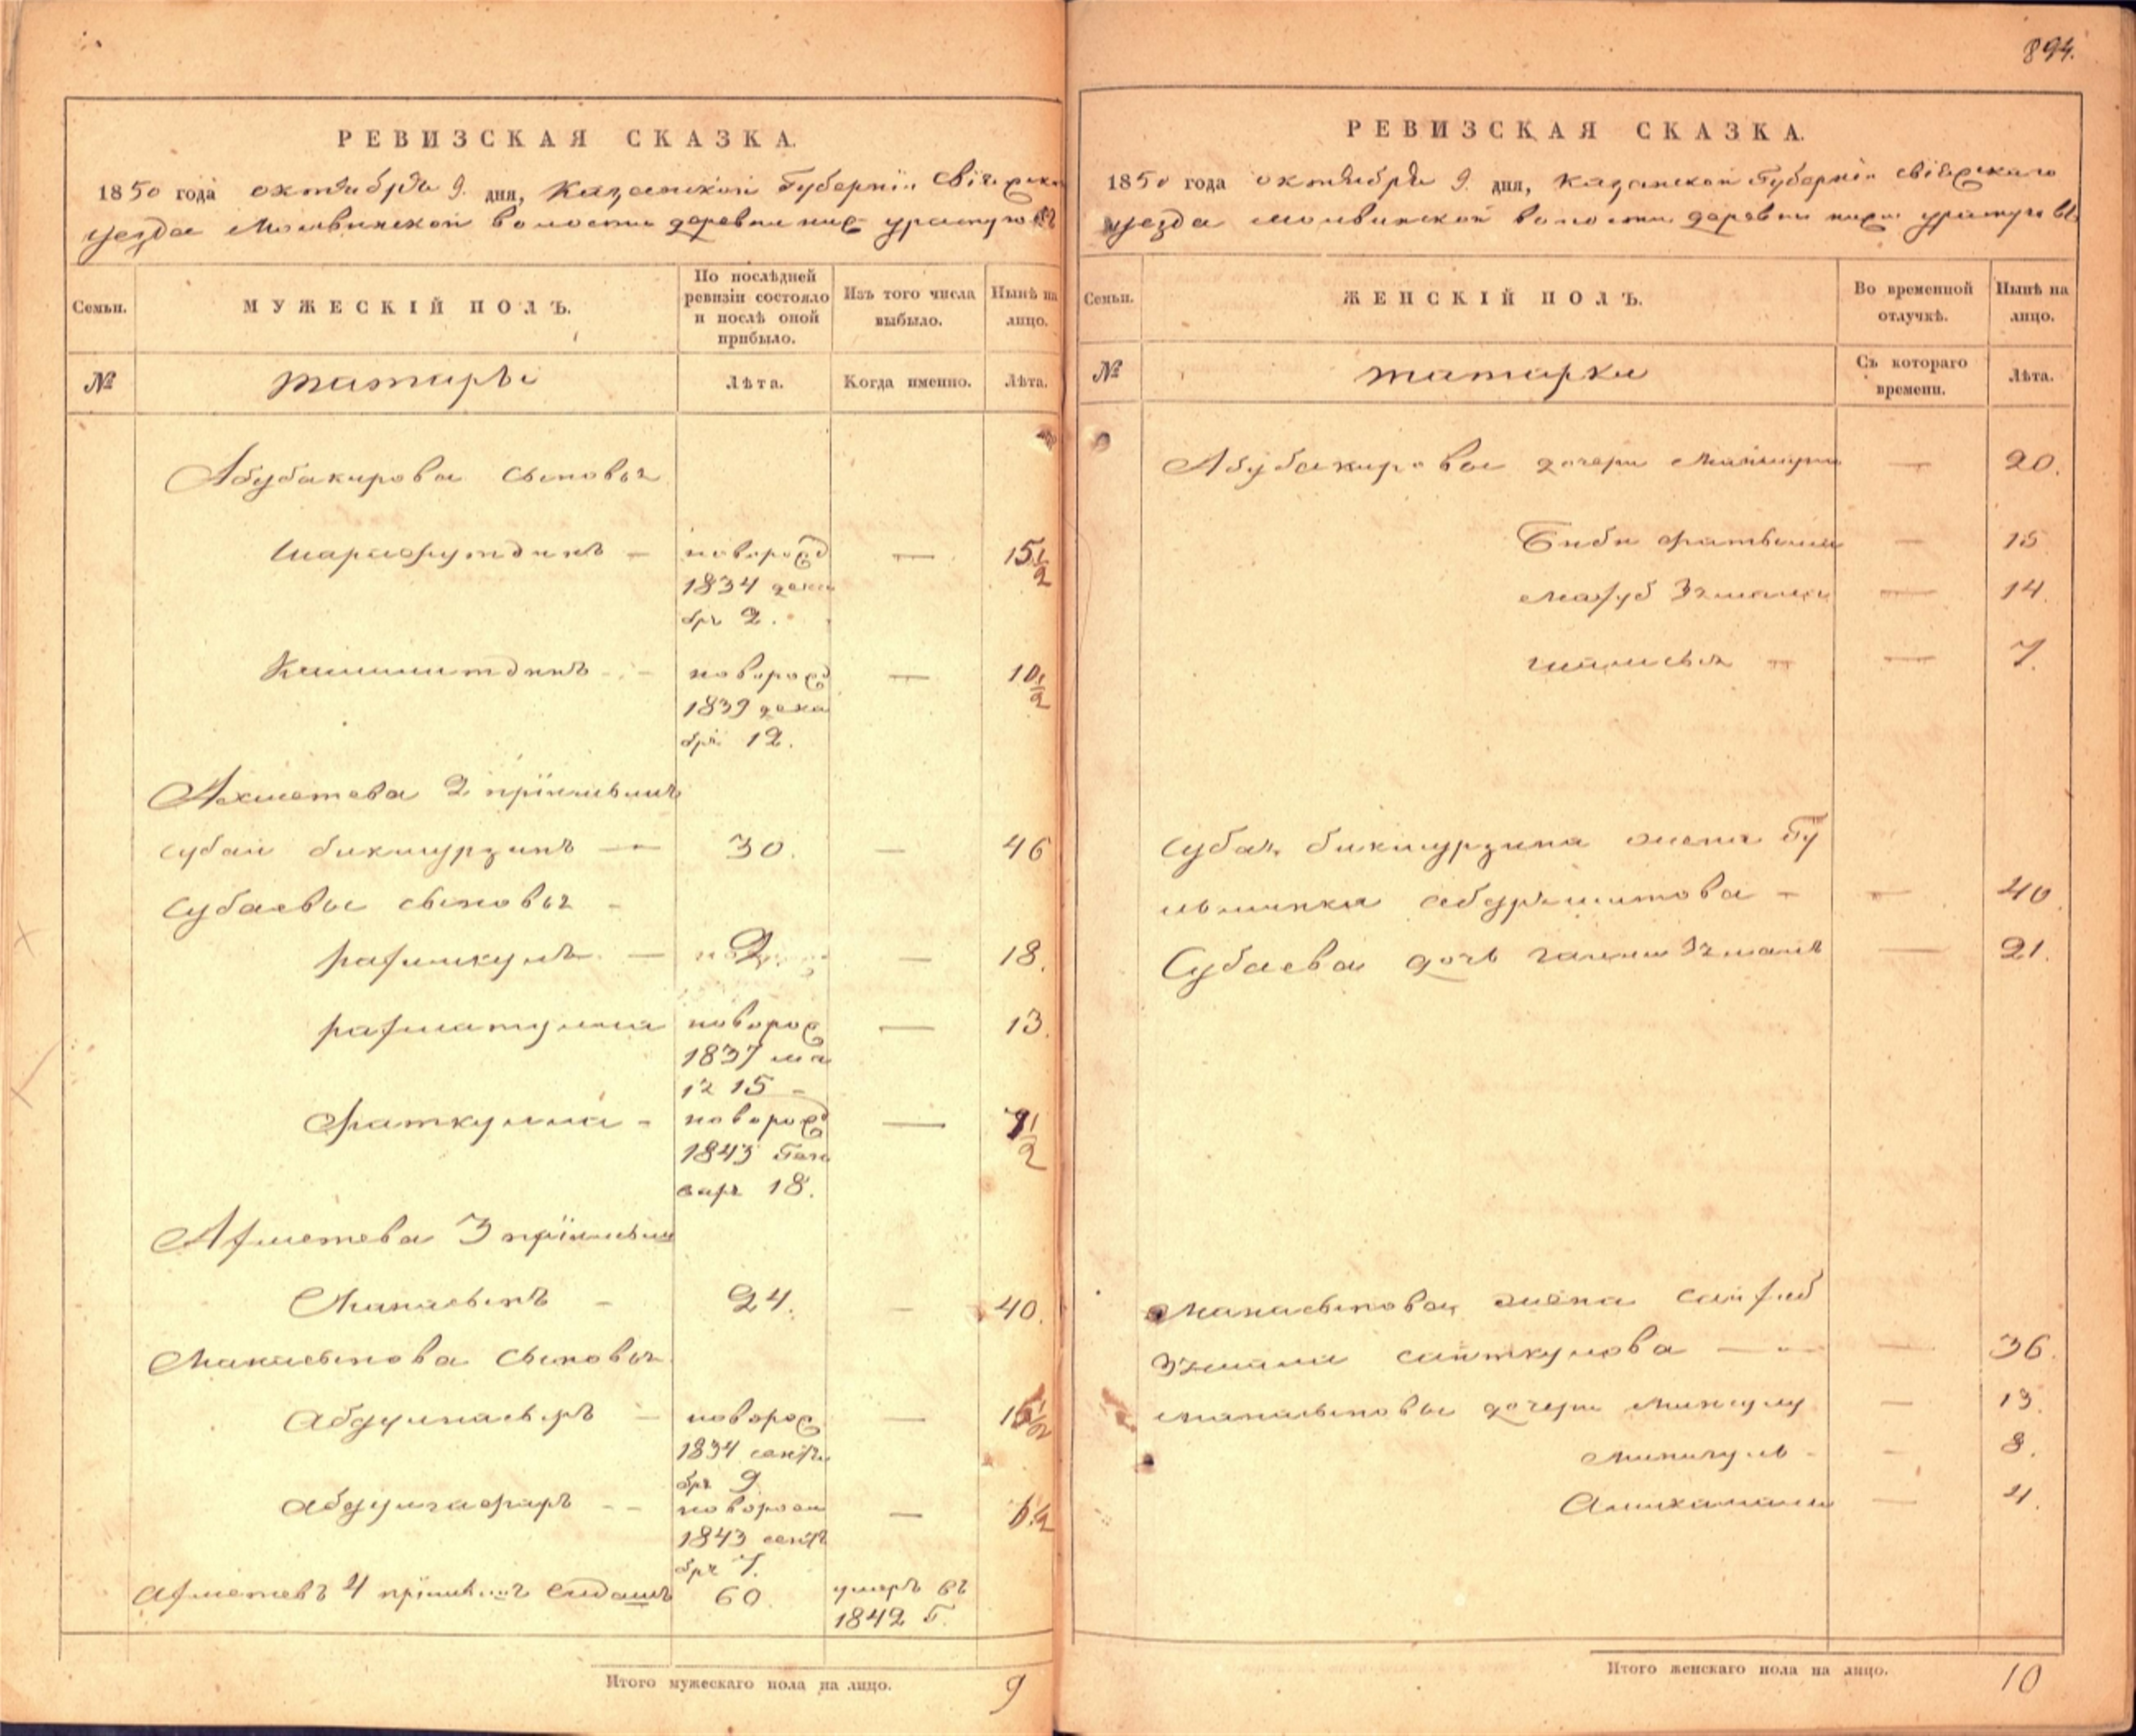 894.
РЕВИЗСКАЯ СКАЗКА.
1850 года октября 9. дня, Казанской Губерніи Свіяжска
уезда Молвинской волости деревни ниж
Семьи.
МУЖЕСКІЙ ПОЛЪ.
По послѣдней ревизіи состояло и послѣ оной прибыло.
Изъ того числа выбыло.
Нынѣ на лицо.
№
татары
Лѣта.
Когда именно.
Лѣта.
Абубакирова сыновья
Шарафутдинъ — новорожд — 15 1/2
1834 дека
бря 2.
новорожд — 10 1/2
1839 дека
бря 12.
Ахметева 2 пріемышъ
Субай бикмурзинъ — 30. — 46
Субаевы сыновья -
рахмкулъ — 2 — 18.
рахматулла новорож — 13.
1837 ма
я 15 -
Фаткулла - новорожд — 7 1/2
1843 Ген
варя 18.
Ахметева 3 пріемыш
Манасыпъ - 24. - 40.
Манасыпова сыновья
Абдулнасыръ — новорож —
1834 сентя
бря 9.
Абдулгафаръ - - новорож —
1843 сентя
бря 7.
Ахметевъ 4 пріемышъ 60. умеръ въ
1842 Г.
Итого мужескаго пола на лицо. 9
РЕВИЗСКАЯ СКАЗКА.
1850 года октября 9. дня, Казанской Губерніи Свіяжскаго
уезда Молвинской волости деревни ниж
Семьи.
ЖЕНСКІЙ ПОЛЪ.
Во временной отлучкѣ.
Нынѣ на лицо.
№
татарки
Съ котораго времени.
Лѣта.
Абубакировы дочери — 20.
Биби фатыма — 15
Махуб Зямал — 14.
— 7.
Субая бикмурзина жена Гу
- 40.
Субаева дочь Зямаль — 21.
Манасыпова жена
Зямал саиткулова — 36.
Манасыповы дочери — 13.
Минигуль - - 8.
— 4.
Итого женскаго пола на лицо. 10